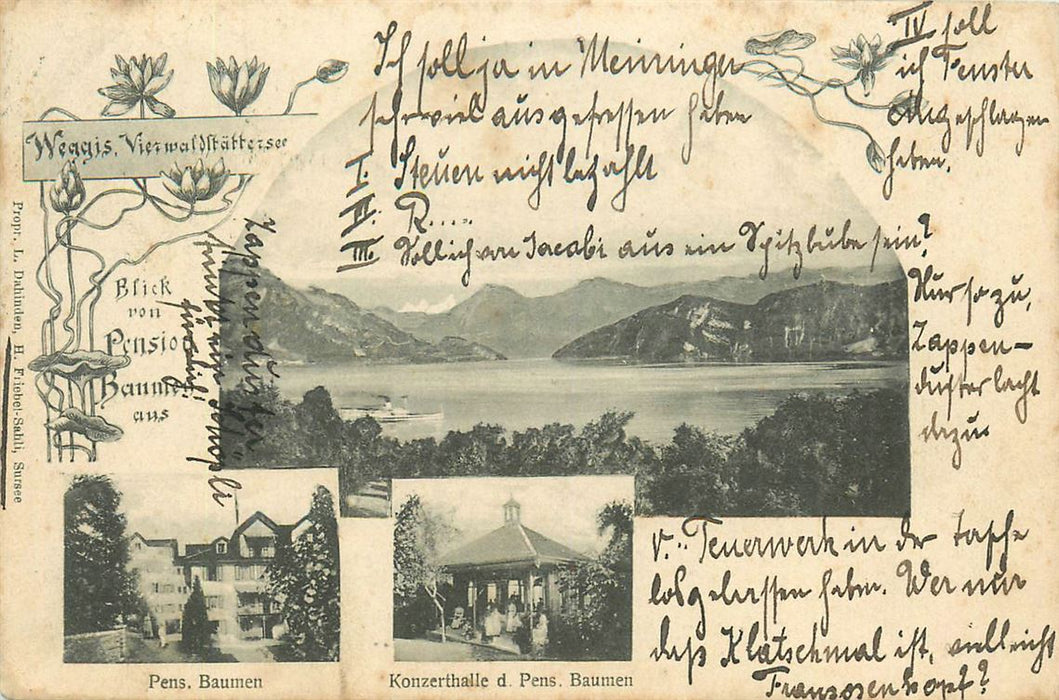 Ich soll ja in Meiringen
sehr viel ausgefressen haben
I. Steuern nicht bezahlt
II. R.....
III. Soll ich von Jacobi aus ein Spitzbube sein?
IV soll
ich Fenster
eingeschlagen
haben.
Nur so zu,
Zappen-
duster lacht
dazu
V.. Feuerwerk in der Tasche
losgelassen haben. Wer nur
das Klatschmaul ist, vielleicht
Franzosenkopf?
Zappenduster
Weggis, Vierwaldstättersee
Blick
von
Pension
Baumen
aus
Propr. L. Dahinden, H. Friebel-Sahli, Sursee
Pens. Baumen
Konzerthalle d. Pens. Baumen